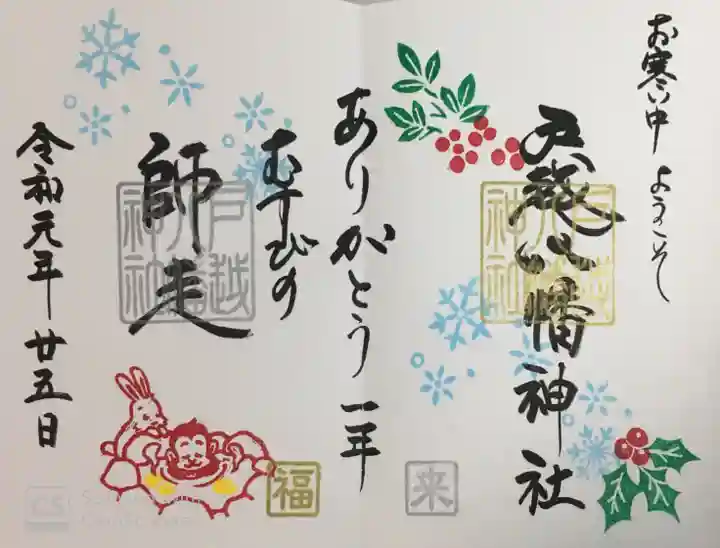 お寒い中 ようこそ
戸越八幡神社
ありがとう 一年
むすびの
師走
令和元年 廿五日
戸越八幡神社
福
来
CS
CamScanner